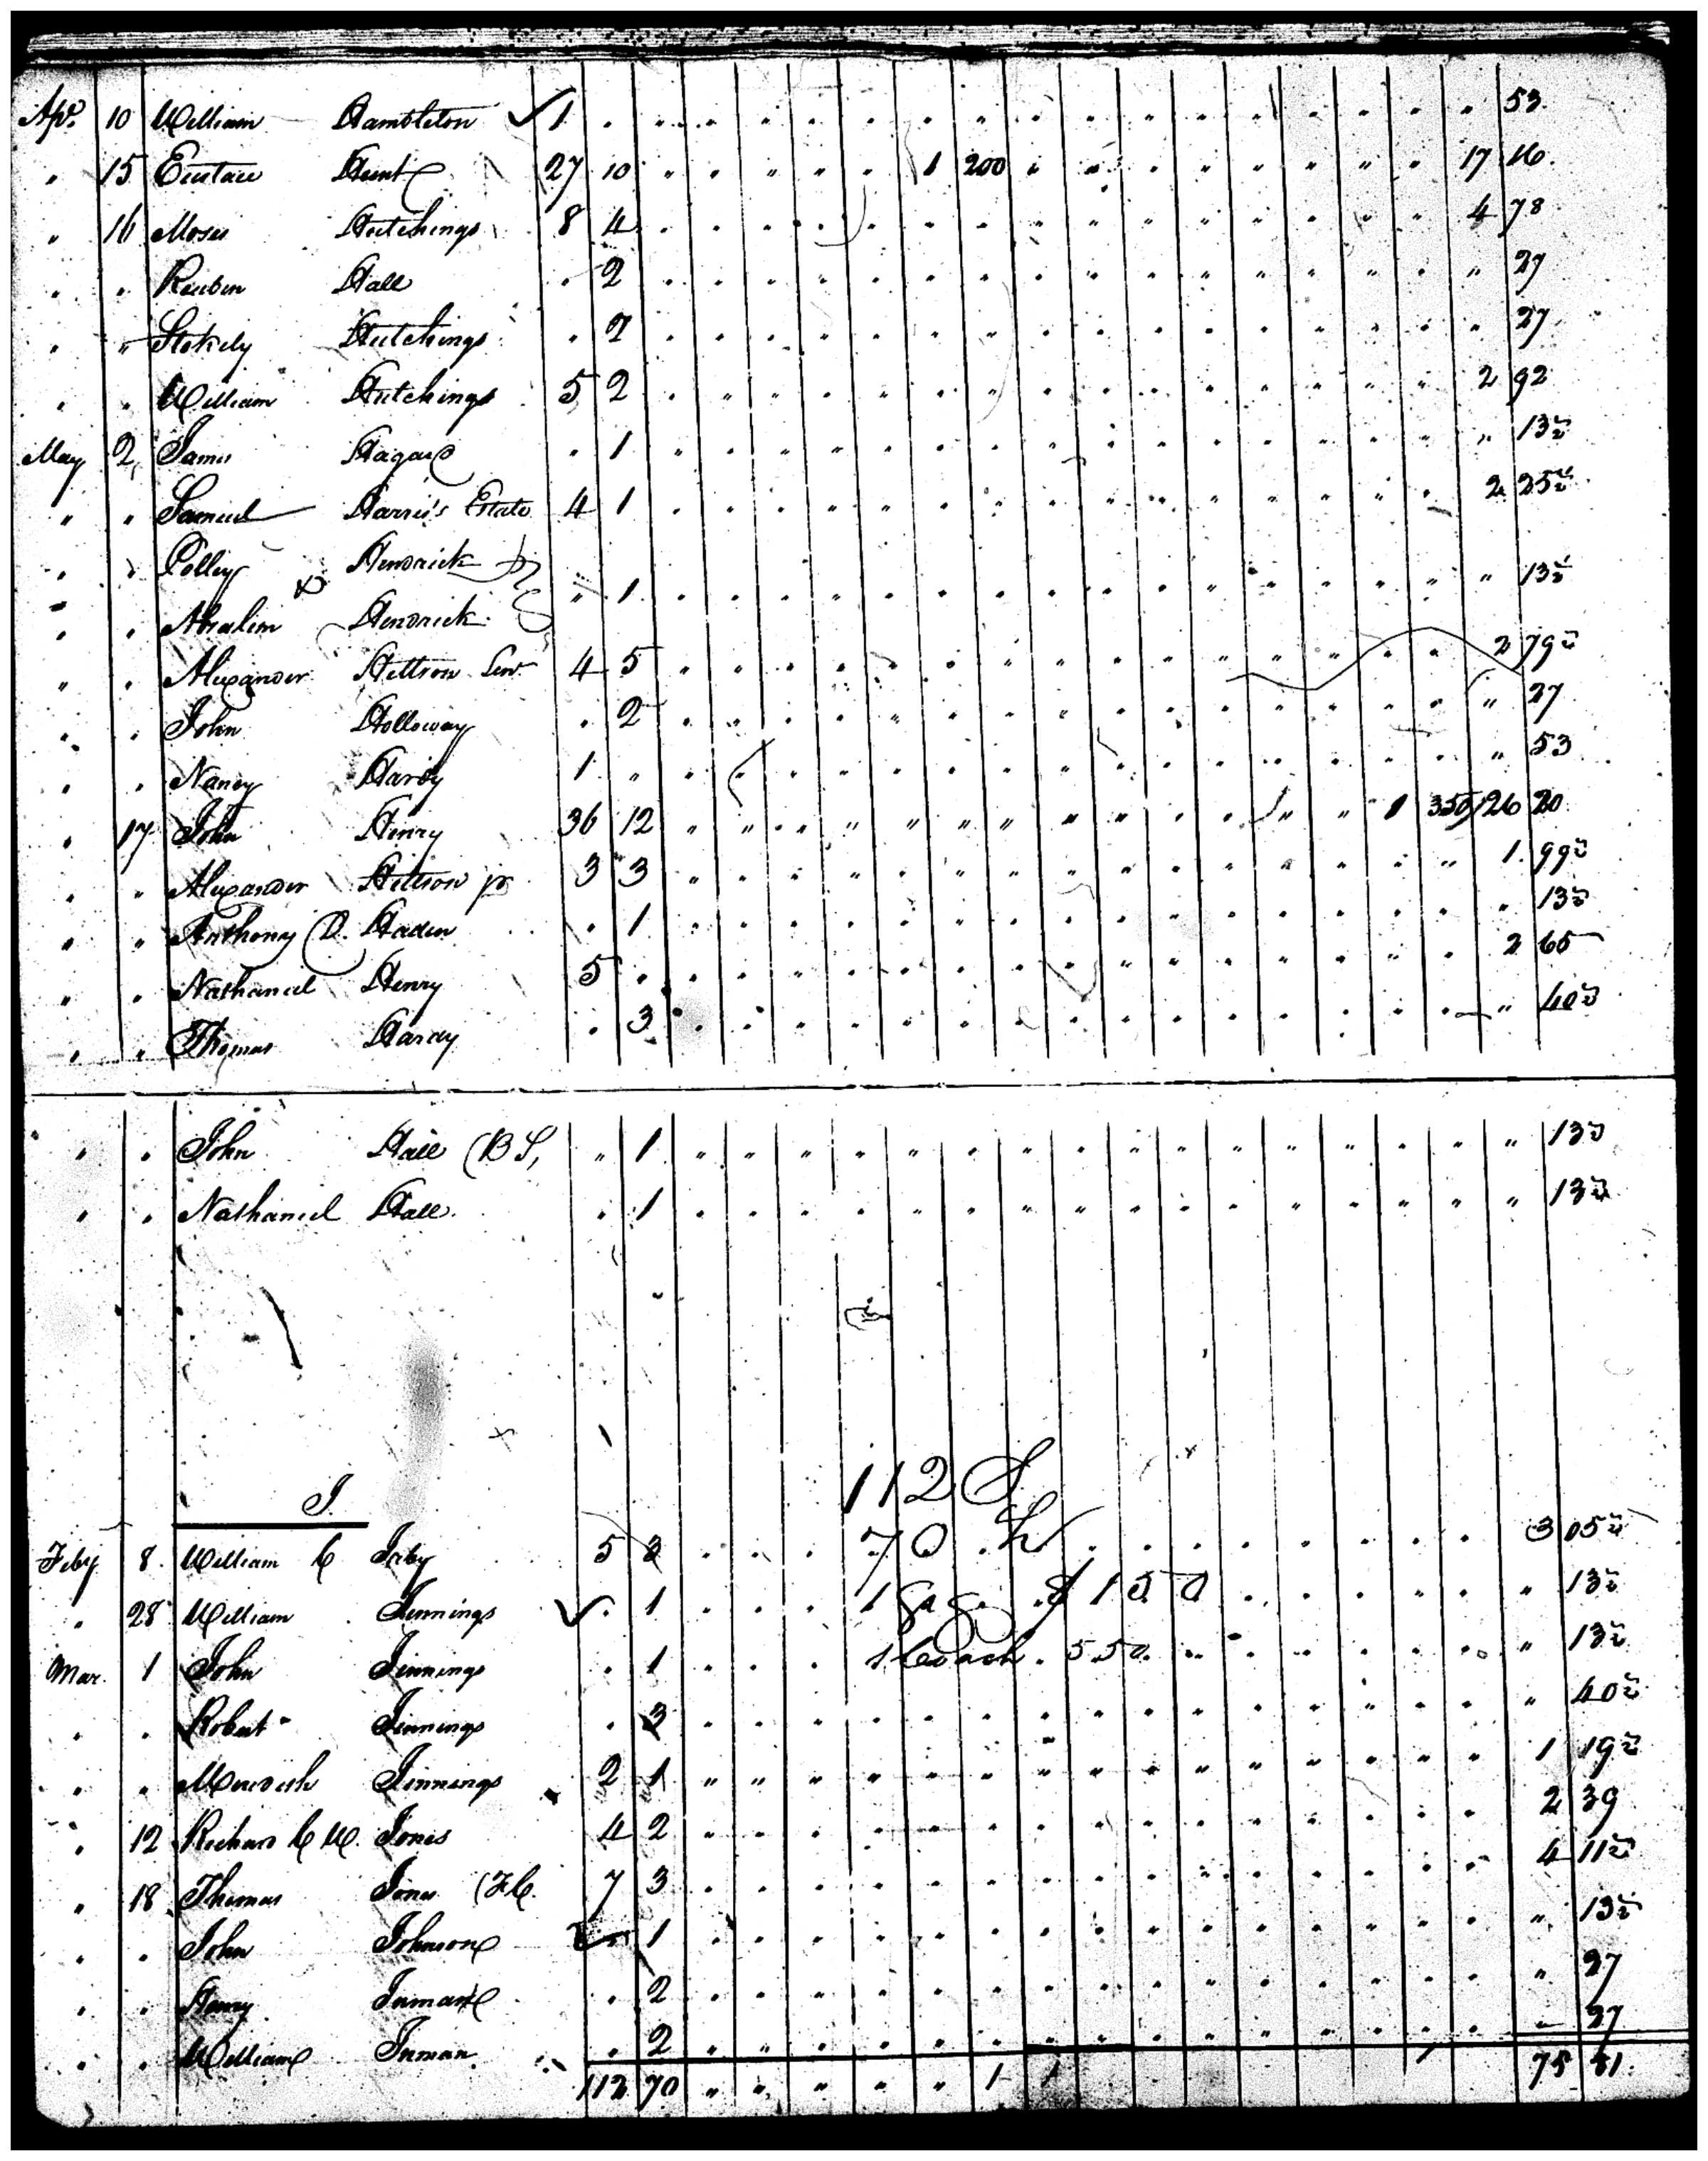 Apr. 10 William Hambleton 1 53
" 15 Eustace Hunt 27 10 1 200 17 16
" 16 Moses Hutchings 8 4 4 78
" " Reuben Hall 2 27
" " Stokely Hutchings 2 27
" " William Hutchings 5 2 2 92
May 2 James Hagard 1 13½
" " Samuel Harris's Estate 4 1 2 25½
" " Polley Hendrick
" " 1 13½
" " Absalim Hendrick
" " Alexander Hettson Senr 4 5 2 79½
" " John Holloway 2 27
" " Nancy Hardy 1 53
" 17 John Henry 36 12 1 350 26 20
" " Alexander Hettson jr 3 3 1 99½
" " Anthony D. Haden 1 13½
" " Nathaniel Henry 5 2 65
" " Thomas Hardy 3 40½
" " John Hall (BS, 1 13½
" " Nathaniel Hall 1 13½
112 S
J.
70 h
Feby 8 William C Irby 5 3 3 05½
" 28 William Jennings 1 1 Gig $150 13½
Mar. 1 John Jennings 1 1 Coach 550 13½
" " Robert Jennings 3 40½
" " Meredith Jennings 2 1 1 19½
" 12 Richard C W. Jones 4 2 2 39
" 18 Thomas Jones (FC. 7 3 4 11½
" " John Johnson 1 13½
" " Henry Inman 2 27
" " William Inman 2 27
112 70 1 1 75 51